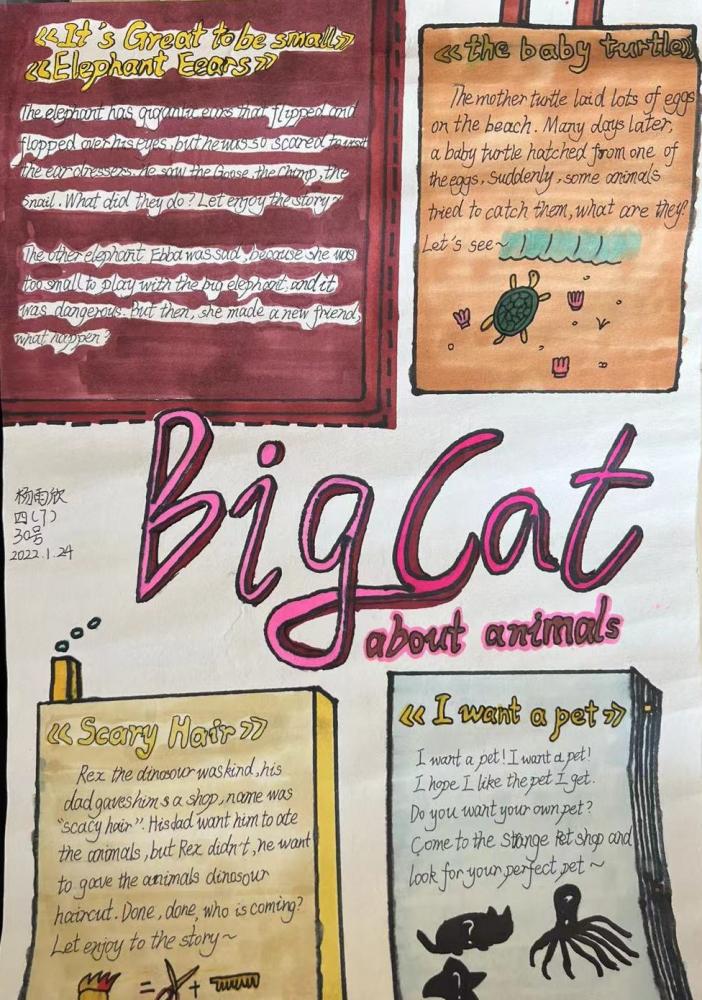 《It's Great to be small》
《Elephant Eears》
The elephant has gigantic ears that flipped and
flopped over his eyes, but he was so scared to visit
the ear dressers. He saw the Goose, the Chimp, the
Snail. What did they do? Let enjoy the story~
The other elephant Ebba was sad, because she was
too small to play with the big elephant, and it
was dangerous. But then, she made a new friend,
what happen?
《the baby turtle》
The mother turtle laid lots of eggs
on the beach. Many days later,
a baby turtle hatched from one of
the eggs, suddenly, some animals
tried to catch them, what are they?
Let's see~
杨雨欣
四(7)
30号
2022.1.24
Big Cat
about animals
《Scary Hair》
Rex the dinasour was kind, his
dad gaves him s a shop, name was
"scacy hair". His dad want him to ate
the animals, but Rex didn't, he want
to gave the animals dinasour
haircut. Done, done, who is coming?
Let enjoy to the story~
《I want a pet》
I want a pet! I want a pet!
I hope I like the pet I get.
Do you want your own pet?
Come to the Strange Pet shop and
look for your perfect pet~